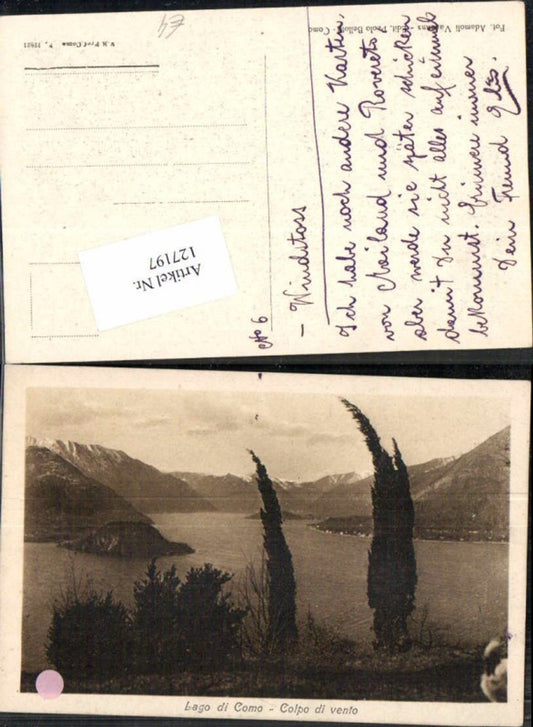 Fot. Adamoli Varenna
Edit. Paolo Belloni - Como
V. B. Prof. Como
E4
Artikel Nr.
127197
No 6
- Windstoss
Ich habe noch andere Karten
von Mailand und Rovereto
aber werde sie später schicken
damit Du nicht alles auf einmal
bekommst. Erinnere immer
Dein Freund
Lago di Como - Colpo di vento